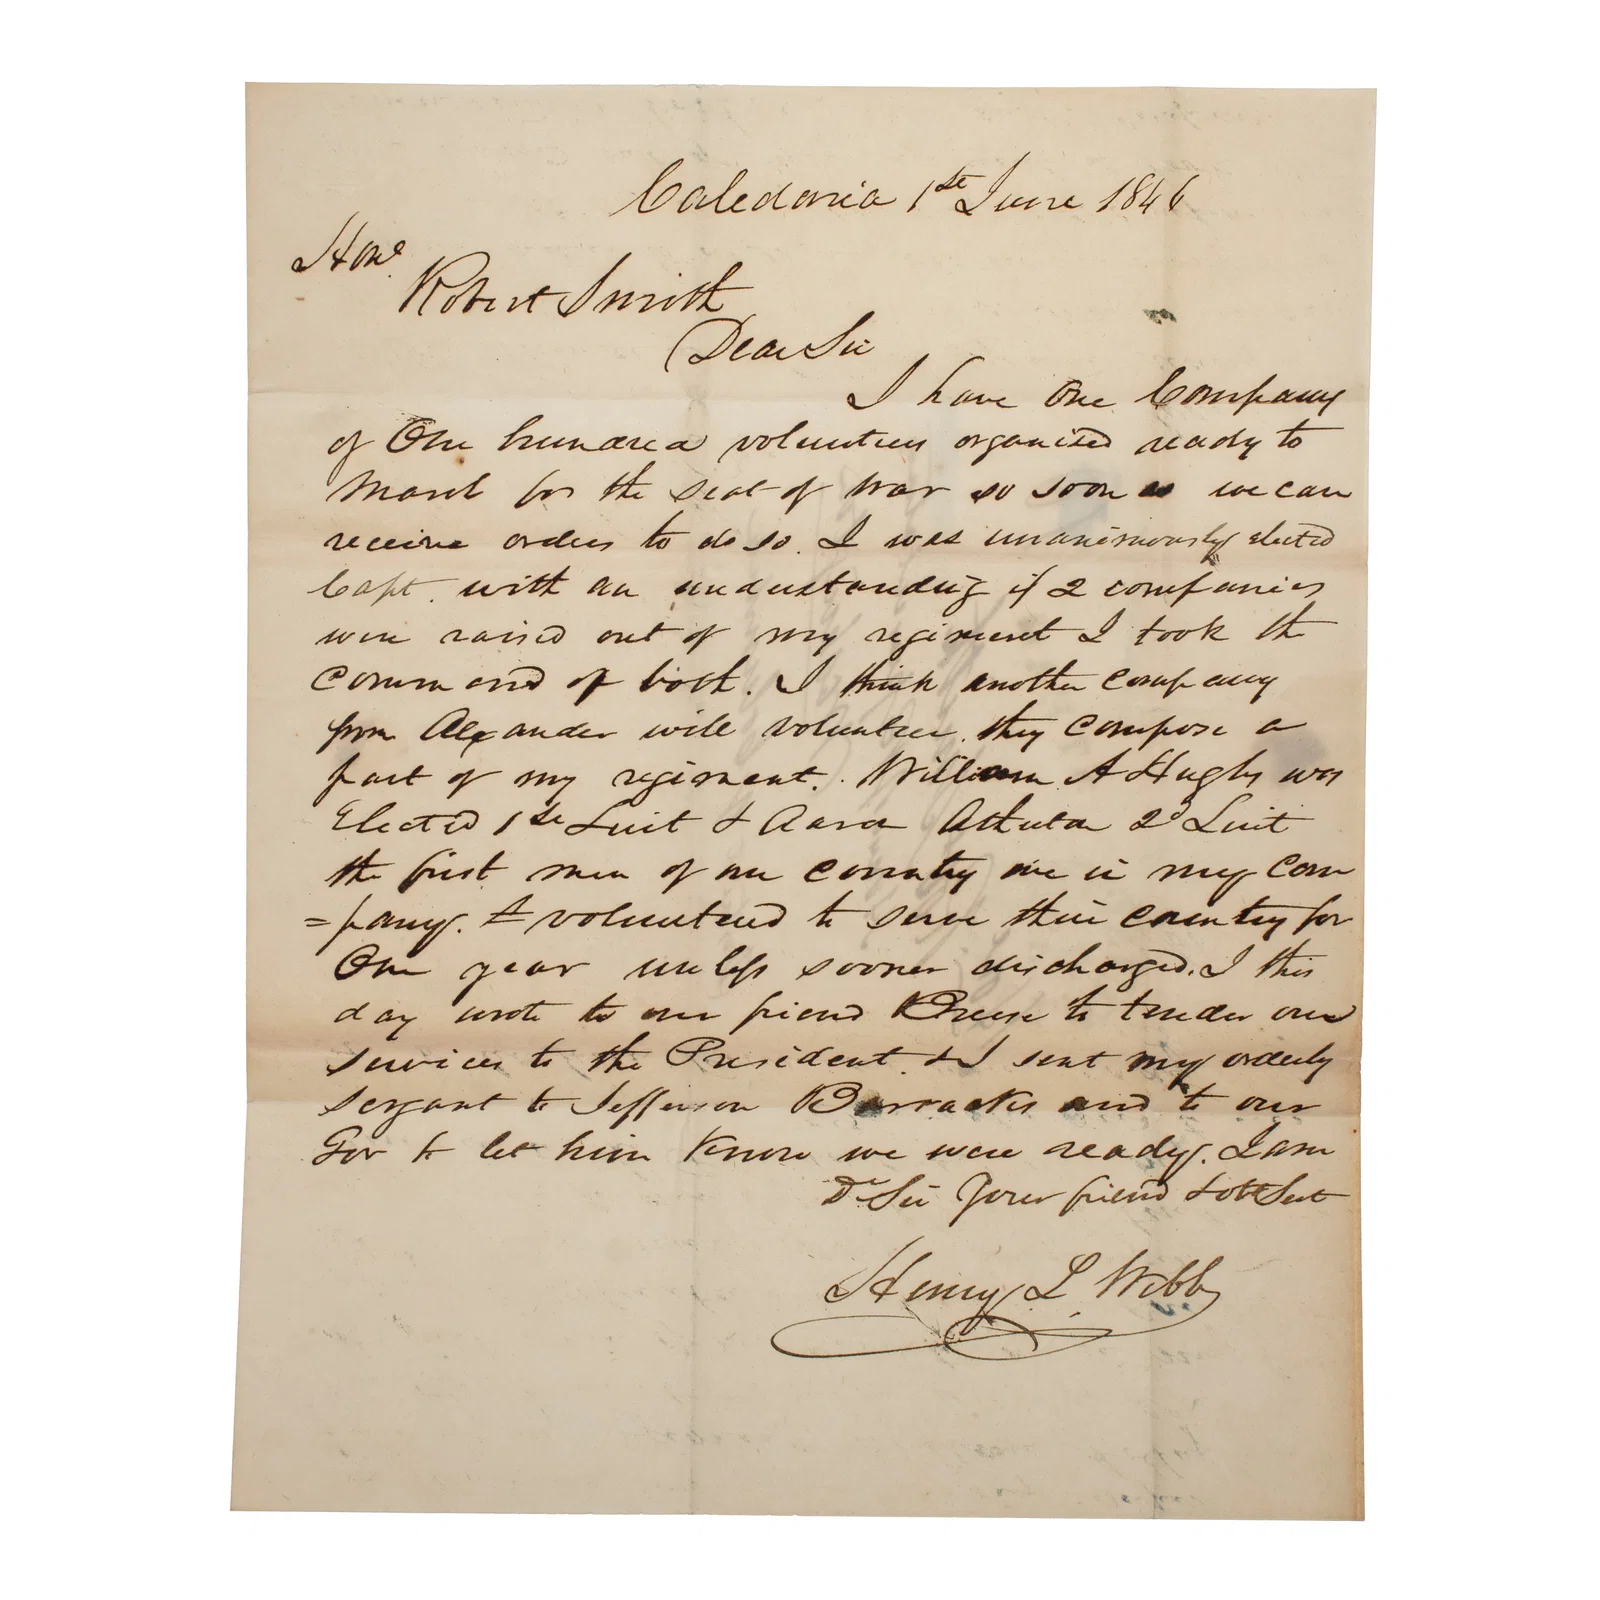 Caledonia 1st June 1846
Hone.
Robert Smith
Dear Sir
I have One Company
of One hundred volunteers organised ready to
March for the seat of War so soon as we can
receive orders to do so. I was unanimously elected
Capt. with an understanding if 2 companies
were raised out of my regiment I took the
Command of both. I think another company
from Alexander will volunteer. they compose a
part of my regiment. William A Hughs was
Elected 1st Leuit & Aaron Atherton 2d Leuit
the first men of our County are in my Com
=pany. & volunteered to serve their country for
One year unless sooner discharged. I this
day wrote to our friend Breese to tender our
services to the President. & I sent my orderly
sergant to Jefferson Barracks and to our
Gov to let him Know we were ready. I am
Dr Sir Your friend & obt Sert
Henry L. Webb